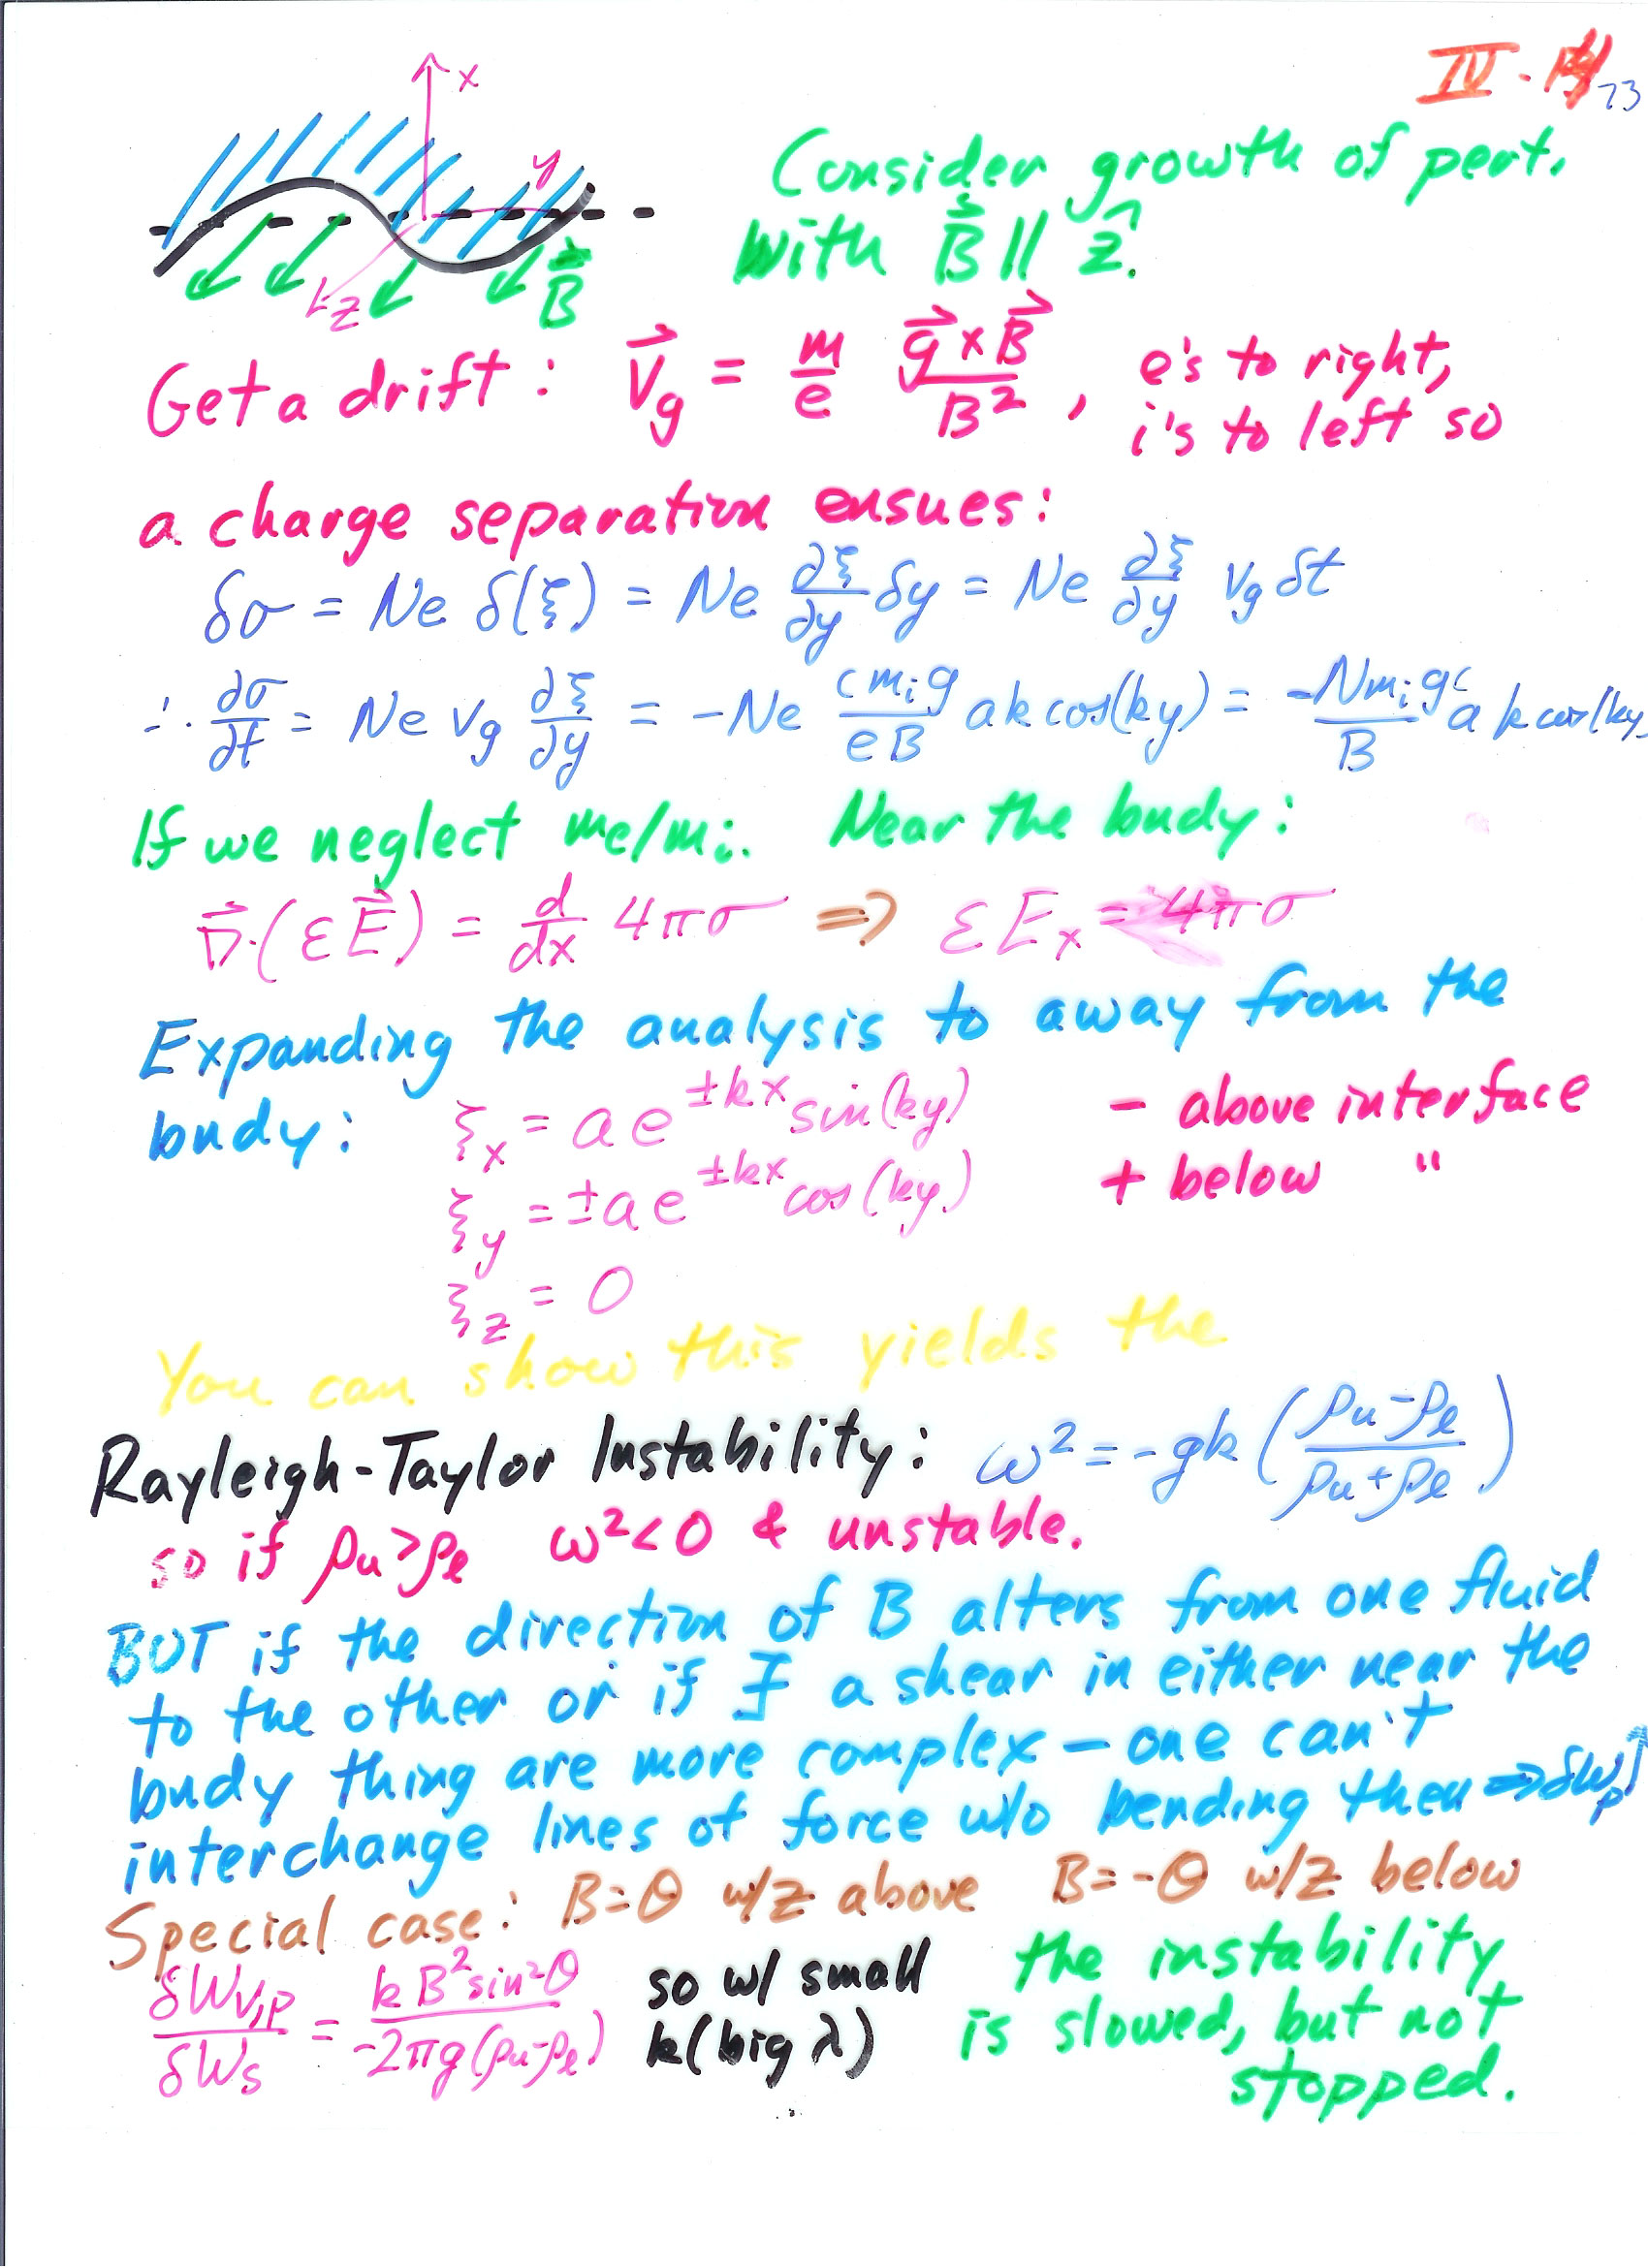 IV - 73
x
y
z
B⃗
Consider growth of pert.
with B⃗ ∥ ẑ.
Get a drift : V⃗g = m/e (g⃗×B⃗)/B² , e's to right,
i's to left so
a charge separation ensues:
δσ = Ne δ(ξ) = Ne ∂ξ/∂y δy = Ne ∂ξ/∂y vg δt
∴ ∂σ/∂t = Ne vg ∂ξ/∂y = -Ne (c mi g)/(eB) ak cos(ky) = (-N mi g c)/B a k cos(ky)
If we neglect me/mi. Near the bndy:
∇⃗·(εE⃗) = d/dx 4πσ ⇒ εEx = 4πσ
Expanding the analysis to away from the
bndy: ξx = a e^(±kx) sin(ky) - above interface
ξy = ±a e^(±kx) cos(ky) + below "
ξz = 0
You can show this yields the
Rayleigh-Taylor Instability: ω² = -gk ((ρu-ρℓ)/(ρu+ρℓ))
so if ρu>ρℓ ω²<0 & unstable.
BUT if the direction of B alters from one fluid
to the other or if ∃ a shear in either near the
bndy thing are more complex - one can't
interchange lines of force w/o bending then ⇒ δWp↑
Special case: B=θ w/z above B=-θ w/z below
δWv,p/δWs = (k B² sin²θ)/(-2πg(ρu-ρℓ)) so w/ small
k (big λ)
the instability
is slowed, but not
stopped.